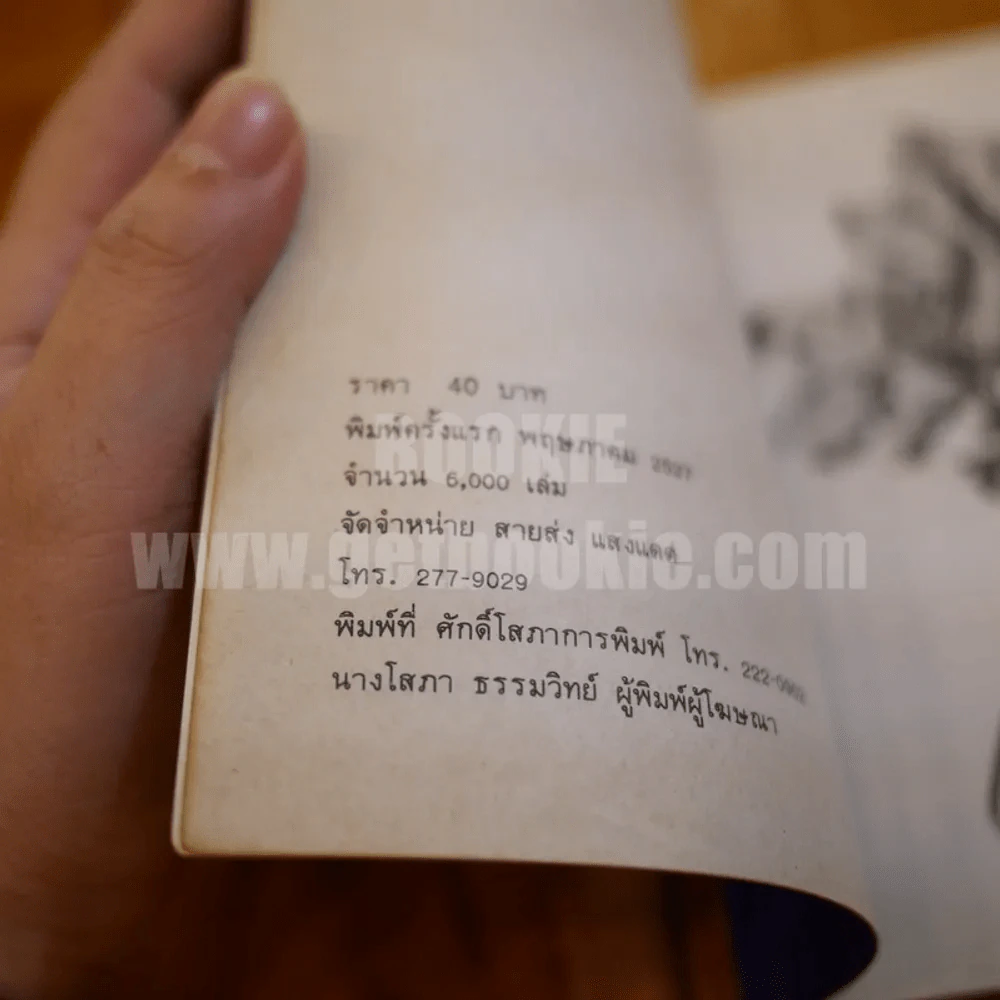 ราคา 40 บาท
พิมพ์ครั้งแรก พฤษภาคม 2527
จำนวน 6,000 เล่ม
จัดจำหน่าย สายส่ง แสงแดด
โทร. 277-9029
พิมพ์ที่ ศักดิ์โสภาการพิมพ์ โทร.
นางโสภา ธรรมวิทย์ ผู้พิมพ์ผู้โฆษณา
BOOKIE
www.getbookie.com